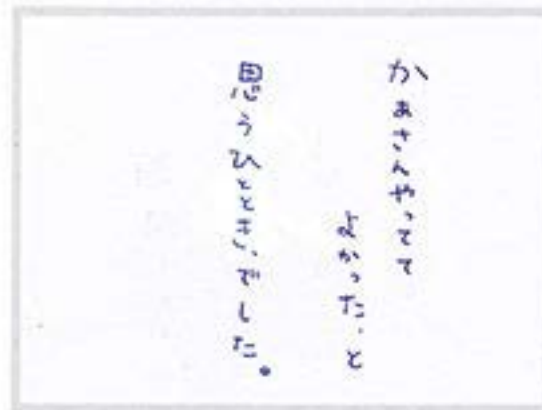 かあさんやってて
よかった、と
思うひとときでした。